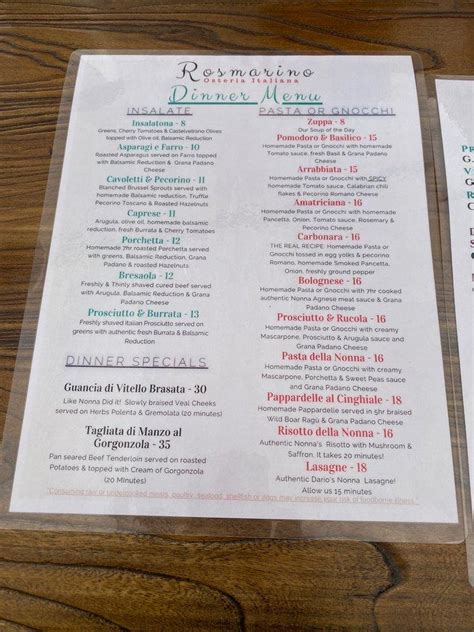 Rosmarino
Osteria Italiana
Dinner Menu
INSALATE
Insalatona - 8
Greens, Cherry Tomatoes & Castelvetrano Olives
topped with Olive oil, Balsamic Reduction
Asparagi e Farro - 10
Roasted Asparagus served on Farro topped
with Balsamic Reduction & Grana Padano
Cheese
Cavoletti & Pecorino - 11
Blanched Brussel Sprouts served with
homemade Balsamic reduction, Truffle
Pecorino Toscano & Roasted Hazelnuts
Caprese - 11
Arugula, olive oil, homemade balsamic
reduction, fresh Burrata & Cherry Tomatoes
Porchetta - 12
Homemade 7hr roasted Porchetta served
with greens, Balsamic Reduction, Grana
Padano & roasted Hazelnuts
Bresaola - 12
Freshly & Thinly shaved cured beef served
with Arugula, Balsamic Reduction & Grana
Padano Cheese
Prosciutto & Burrata - 13
Freshly shaved Italian Prosciutto served
on greens with fresh Burrata & Balsamic
Reduction
DINNER SPECIALS
Guancia di Vitello Brasata - 30
Like Nonna Did it! Slowly braised Veal Cheeks
served on Herbs Polenta & Gremolata (20 minutes)
Tagliata di Manzo al
Gorgonzola - 35
Pan seared Beef Tenderloin served on roasted
Potatoes & topped with Cream of Gorgonzola
(20 Minutes)
PASTA OR GNOCCHI
Zuppa - 8
Our Soup of the Day
Pomodoro & Basilico - 15
Homemade Pasta or Gnocchi with homemade
Tomato sauce, fresh Basil & Grana Padano
Cheese
Arrabbiata - 15
Homemade Pasta or Gnocchi with SPICY
homemade Tomato sauce, Calabrian chili
flakes & Pecorino Romano Cheese
Amatriciana - 16
Homemade Pasta or Gnocchi with homemade
Pancetta, Onion, Tomato sauce, Rosemary &
Pecorino Cheese
Carbonara - 16
THE REAL RECIPE: Homemade Pasta or
Gnocchi tossed in egg yolks & pecorino
Romano, homemade Smoked Pancetta,
Onion, freshly ground pepper
Bolognese - 16
Homemade Pasta or Gnocchi with 7hr cooked
authentic Nonna Agnese meat sauce & Grana
Padano Cheese
Prosciutto & Rucola - 16
Homemade Pasta or Gnocchi with creamy
Mascarpone, Prosciutto & Arugula sauce and
Grana Padano Cheese
Pasta della Nonna - 16
Homemade Pasta or Gnocchi with creamy
Mascarpone, Porchetta & Sweet Peas sauce
and Grana Padano Cheese
Pappardelle al Cinghiale - 18
Homemade Pappardelle served in 5hr braised
Wild Boar Ragù & Grana Padano Cheese
Risotto della Nonna - 16
Authentic Nonna's Risotto with Mushroom &
Saffron. It takes 20 minutes!
Lasagne - 18
Authentic Dario's Nonna Lasagne!
Allow us 15 minutes
*Consuming raw or undercooked meats, poultry, seafood, shellfish or eggs may increase your risk of foodborne illness.*